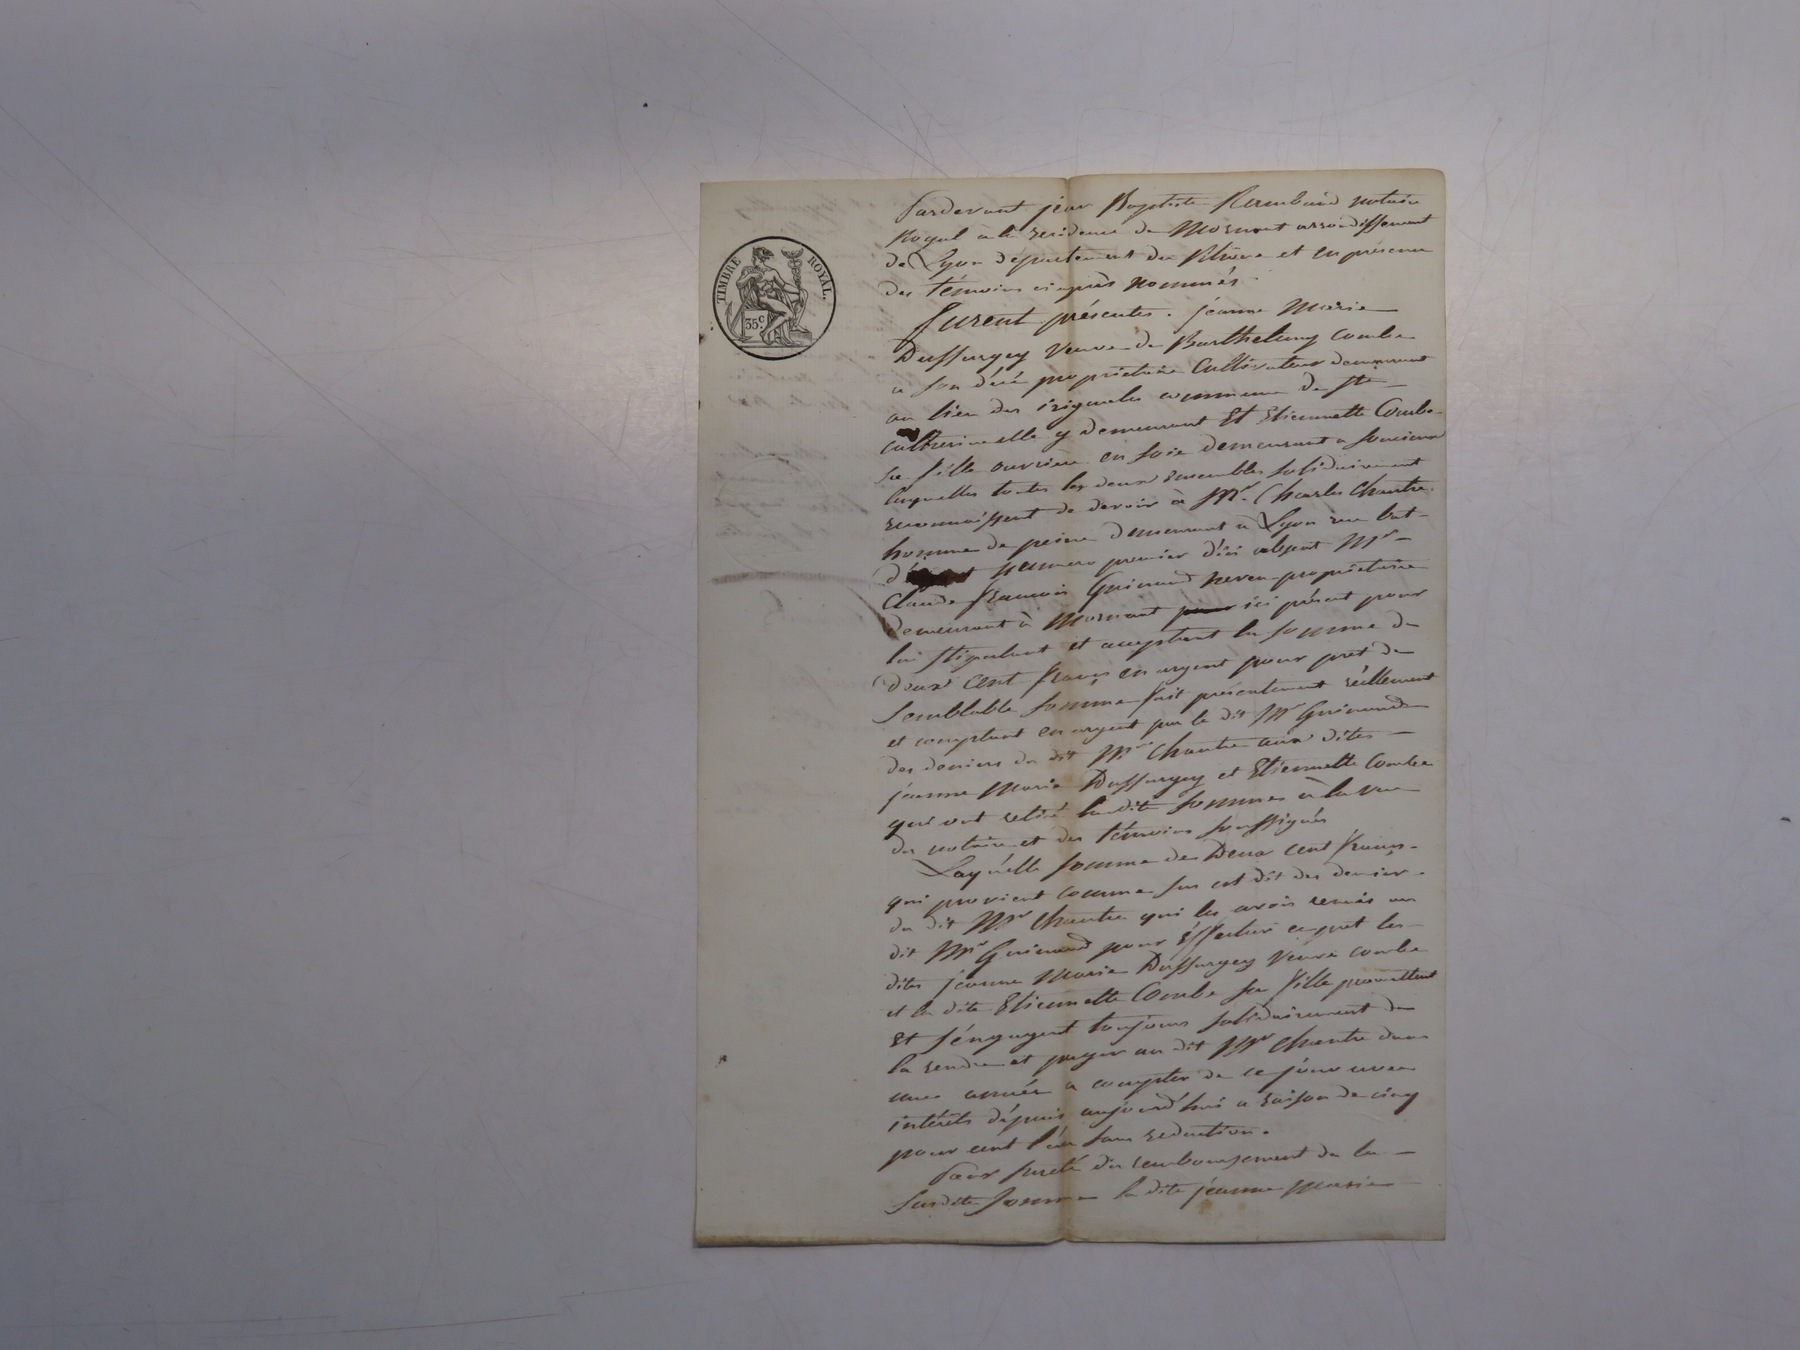 TIMBRE ROYAL.
35 c.
Pardevant jean Baptiste notaire
Royal à la residence de Mornant arrondissement
de Lyon département du Rhône et en présence
des témoins ci après nommés
furent présentes. jeanne Marie
Duffurgey veuve de Barthelemy Combe
a son décé propriétaire Cultivateur demeurant
au lieu des commune de Ste
Catherine elle y demeurant Et Etiennette Combe
sa fille ouvrière en soie demeurant a
lesquelles toutes les deux ensembles solidairement
reconnoissent de devoir à Mr. Charles Chantre
homme de peine demeurant à Lyon rue bat-
d' numero premier d'ici absent Mr
Claude francois Guinand neveu propriétaire
demeurant à Mornant ici présent pour
lui stipulant et acceptant la somme de
deux cent francs en argent pour pret de
semblable somme fait présentement réellement
et comptant en argent par le dit Mr Guinand
des deniers du dit Mr Chantre aux dites
jeanne Marie Duffurgey et Etiennette Combe
qui ont retiré la dite somme à la vue
du notaire et des témoins soussignés
Laquelle somme de Deux cent francs
qui provient comme sus est dit des denier
du dit Mr Chantre qui les avoit remis au
dit Mr Guinand pour éffectuer ce pret les
dites jeanne Marie Duffurgey veuve combe
et la dite Etiennette Combe sa fille promettent
Et s'éngagent toujours solidairement de
la rendre et payer au dit Mr Chantre dans
une année a compter de ce jour avec
intérêts dépuis aujourd'hui a raison de cinq
pour cent l'an sans reduction.
Pour sureté du remboursement de la
susdite somme la dite jeanne Marie